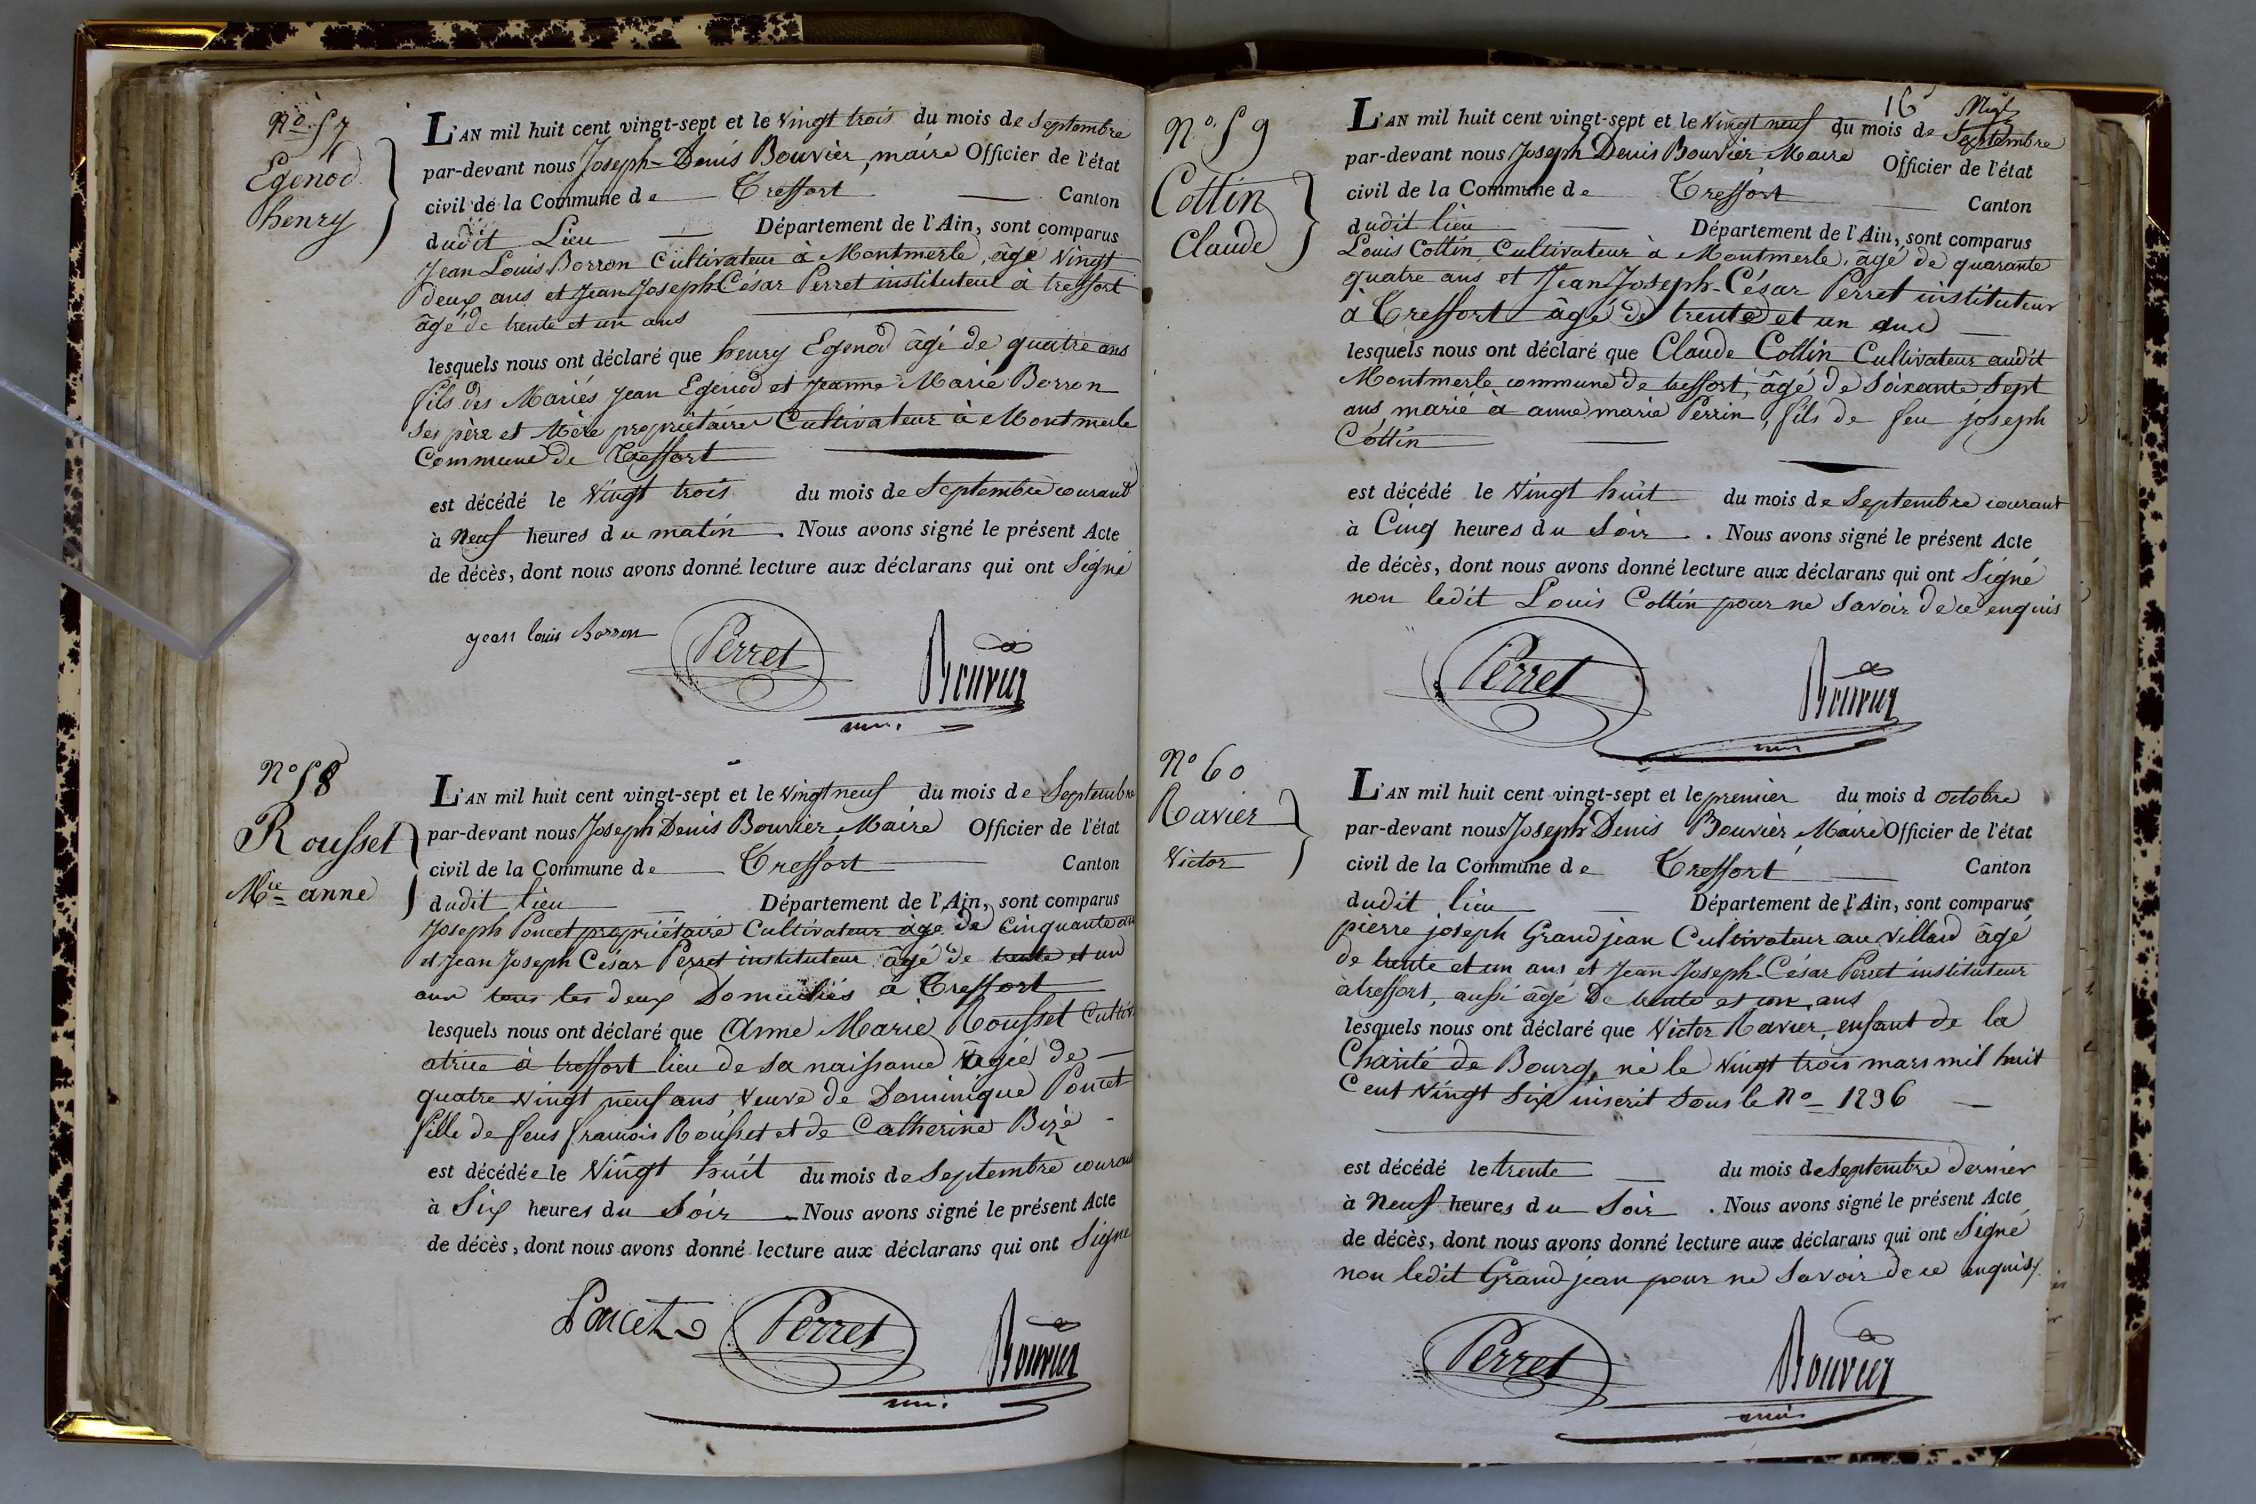 No. 57
Egenod
henry
L'AN mil huit cent vingt-sept et le vingt trois du mois de Septembre
par-devant nous Joseph-Denis Bouvier, maire Officier de l'état
civil de la Commune de Treffort Canton
dudit Lieu Département de l'Ain, sont comparus
Jean Louis Borron Cultivateur à Montmerle, âgé vingt
deux ans et Jean Joseph César Perret instituteur à treffort
âgé de trente et un ans
lesquels nous ont déclaré que henry Egenod âgé de quatre ans
fils des Mariés Jean Egenod et Jeanne Marie Borron
ses père et Mère propriétaires Cultivateur à Montmerle
Commune de Treffort
est décédé le vingt trois du mois de Septembre courant
à Neuf heures du matin. Nous avons signé le présent Acte
de décès, dont nous avons donné lecture aux déclarans qui ont Signé
jean louis Borron Perret Bouvier
No 58
Rousset
Mie anne
L'AN mil huit cent vingt-sept et le vingt neuf du mois de Septembre
par-devant nous Joseph Denis Bouvier Maire Officier de l'état
civil de la Commune de Treffort Canton
dudit lieu Département de l'Ain, sont comparus
Joseph Poncet propriétaire Cultivateur âgé de Cinquante ans
et Jean Joseph César Perret instituteur âgé de trente et un
ans tous les deux Domiciliés à Treffort
lesquels nous ont déclaré que Anne Marie Rousset Cultiv
atrice à treffort lieu de sa naissance âgée de
quatre vingt neuf ans, veuve de Dominique Poncet
fille de feus francois Rousset et de Catherine Bizé
est décédée le vingt huit du mois de Septembre courant
à Six heures du Soir Nous avons signé le présent Acte
de décès, dont nous avons donné lecture aux déclarans qui ont Signé
Poncet Perret Bouvier
16
No. 59
Cottin
Claude
L'AN mil huit cent vingt-sept et le vingt neuf du mois de Septembre
par-devant nous Joseph Denis Bouvier Maire Officier de l'état
civil de la Commune de Treffort Canton
dudit lieu Département de l'Ain, sont comparus
Louis Cottin, Cultivateur à Montmerle, âgé de quarante
quatre ans et Jean Joseph-César Perret instituteur
à Treffort âgé de trente et un ans
lesquels nous ont déclaré que Claude Cottin Cultivateur audit
Montmerle commune de treffort, âgé de Soixante Sept
ans marié à anne marie Perrin, fils de feu joseph
Cottin
est décédé le vingt huit du mois de Septembre courant
à Cinq heures du Soir. Nous avons signé le présent Acte
de décès, dont nous avons donné lecture aux déclarans qui ont Signé
non ledit Louis Cottin pour ne savoir de ce enquis
Perret Bouvier
No 60
Ravier
Victor
L'AN mil huit cent vingt-sept et le premier du mois d octobre
par-devant nous Joseph Denis Bouvier Maire Officier de l'état
civil de la Commune de Treffort Canton
dudit lieu Département de l'Ain, sont comparus
pierre joseph Grandjean Cultivateur au villard âgé
de trente et un ans et Jean Joseph-César Perret instituteur
à treffort, aussi âgé de trente et un ans
lesquels nous ont déclaré que Victor Ravier, enfant de la
Charité de Bourg, né le vingt trois mars mil huit
Cent vingt Six inscrit Sous le No 1296
est décédé le trente du mois de Septembre dernier
à Neuf heures du Soir. Nous avons signé le présent Acte
de décès, dont nous avons donné lecture aux déclarans qui ont Signé
non ledit Grandjean pour ne savoir de ce enquis.
Perret Bouvier